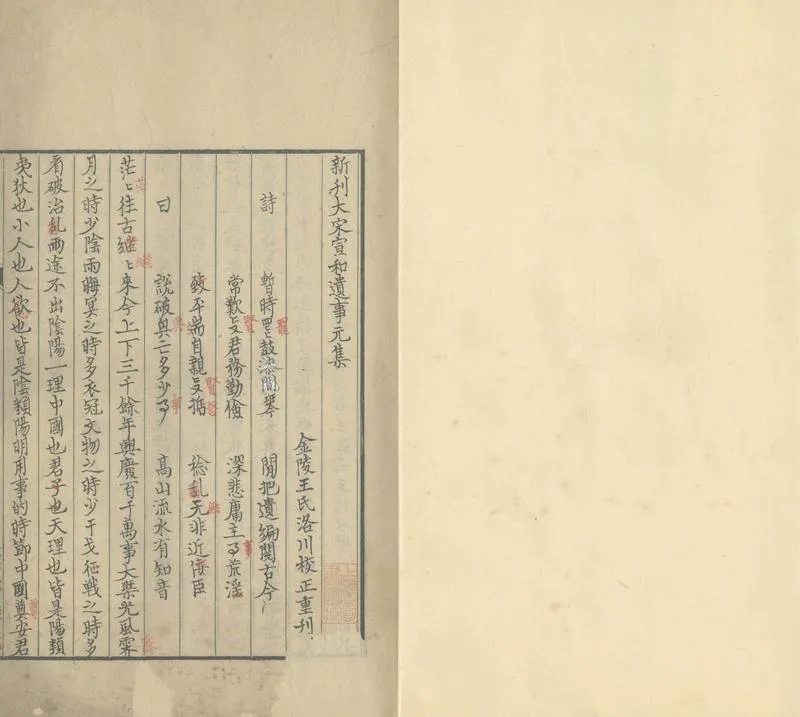 新刊大宋宣和遺事元集
金陵王氏洛川校正重刊
詩 暫時罷鼓膝間琴 閒把遺編閱古今
常歎賢君務勤儉 深悲庸主事荒淫
致平端自親賢哲 稔乱无非近佞臣
曰 說破興亡多少事 高山流水有知音
茫〻往古継〻來今上下三千餘年興廢百千萬事大槩光風霽
月之時少陰雨晦冥之時多衣冠文物之時少干戈征戰之時多
看破治亂兩途不出陰陽一理中國也君子也天理也皆是陽類
夷狄也小人也人慾也皆是陰類陽明用事的時節中國奠安君